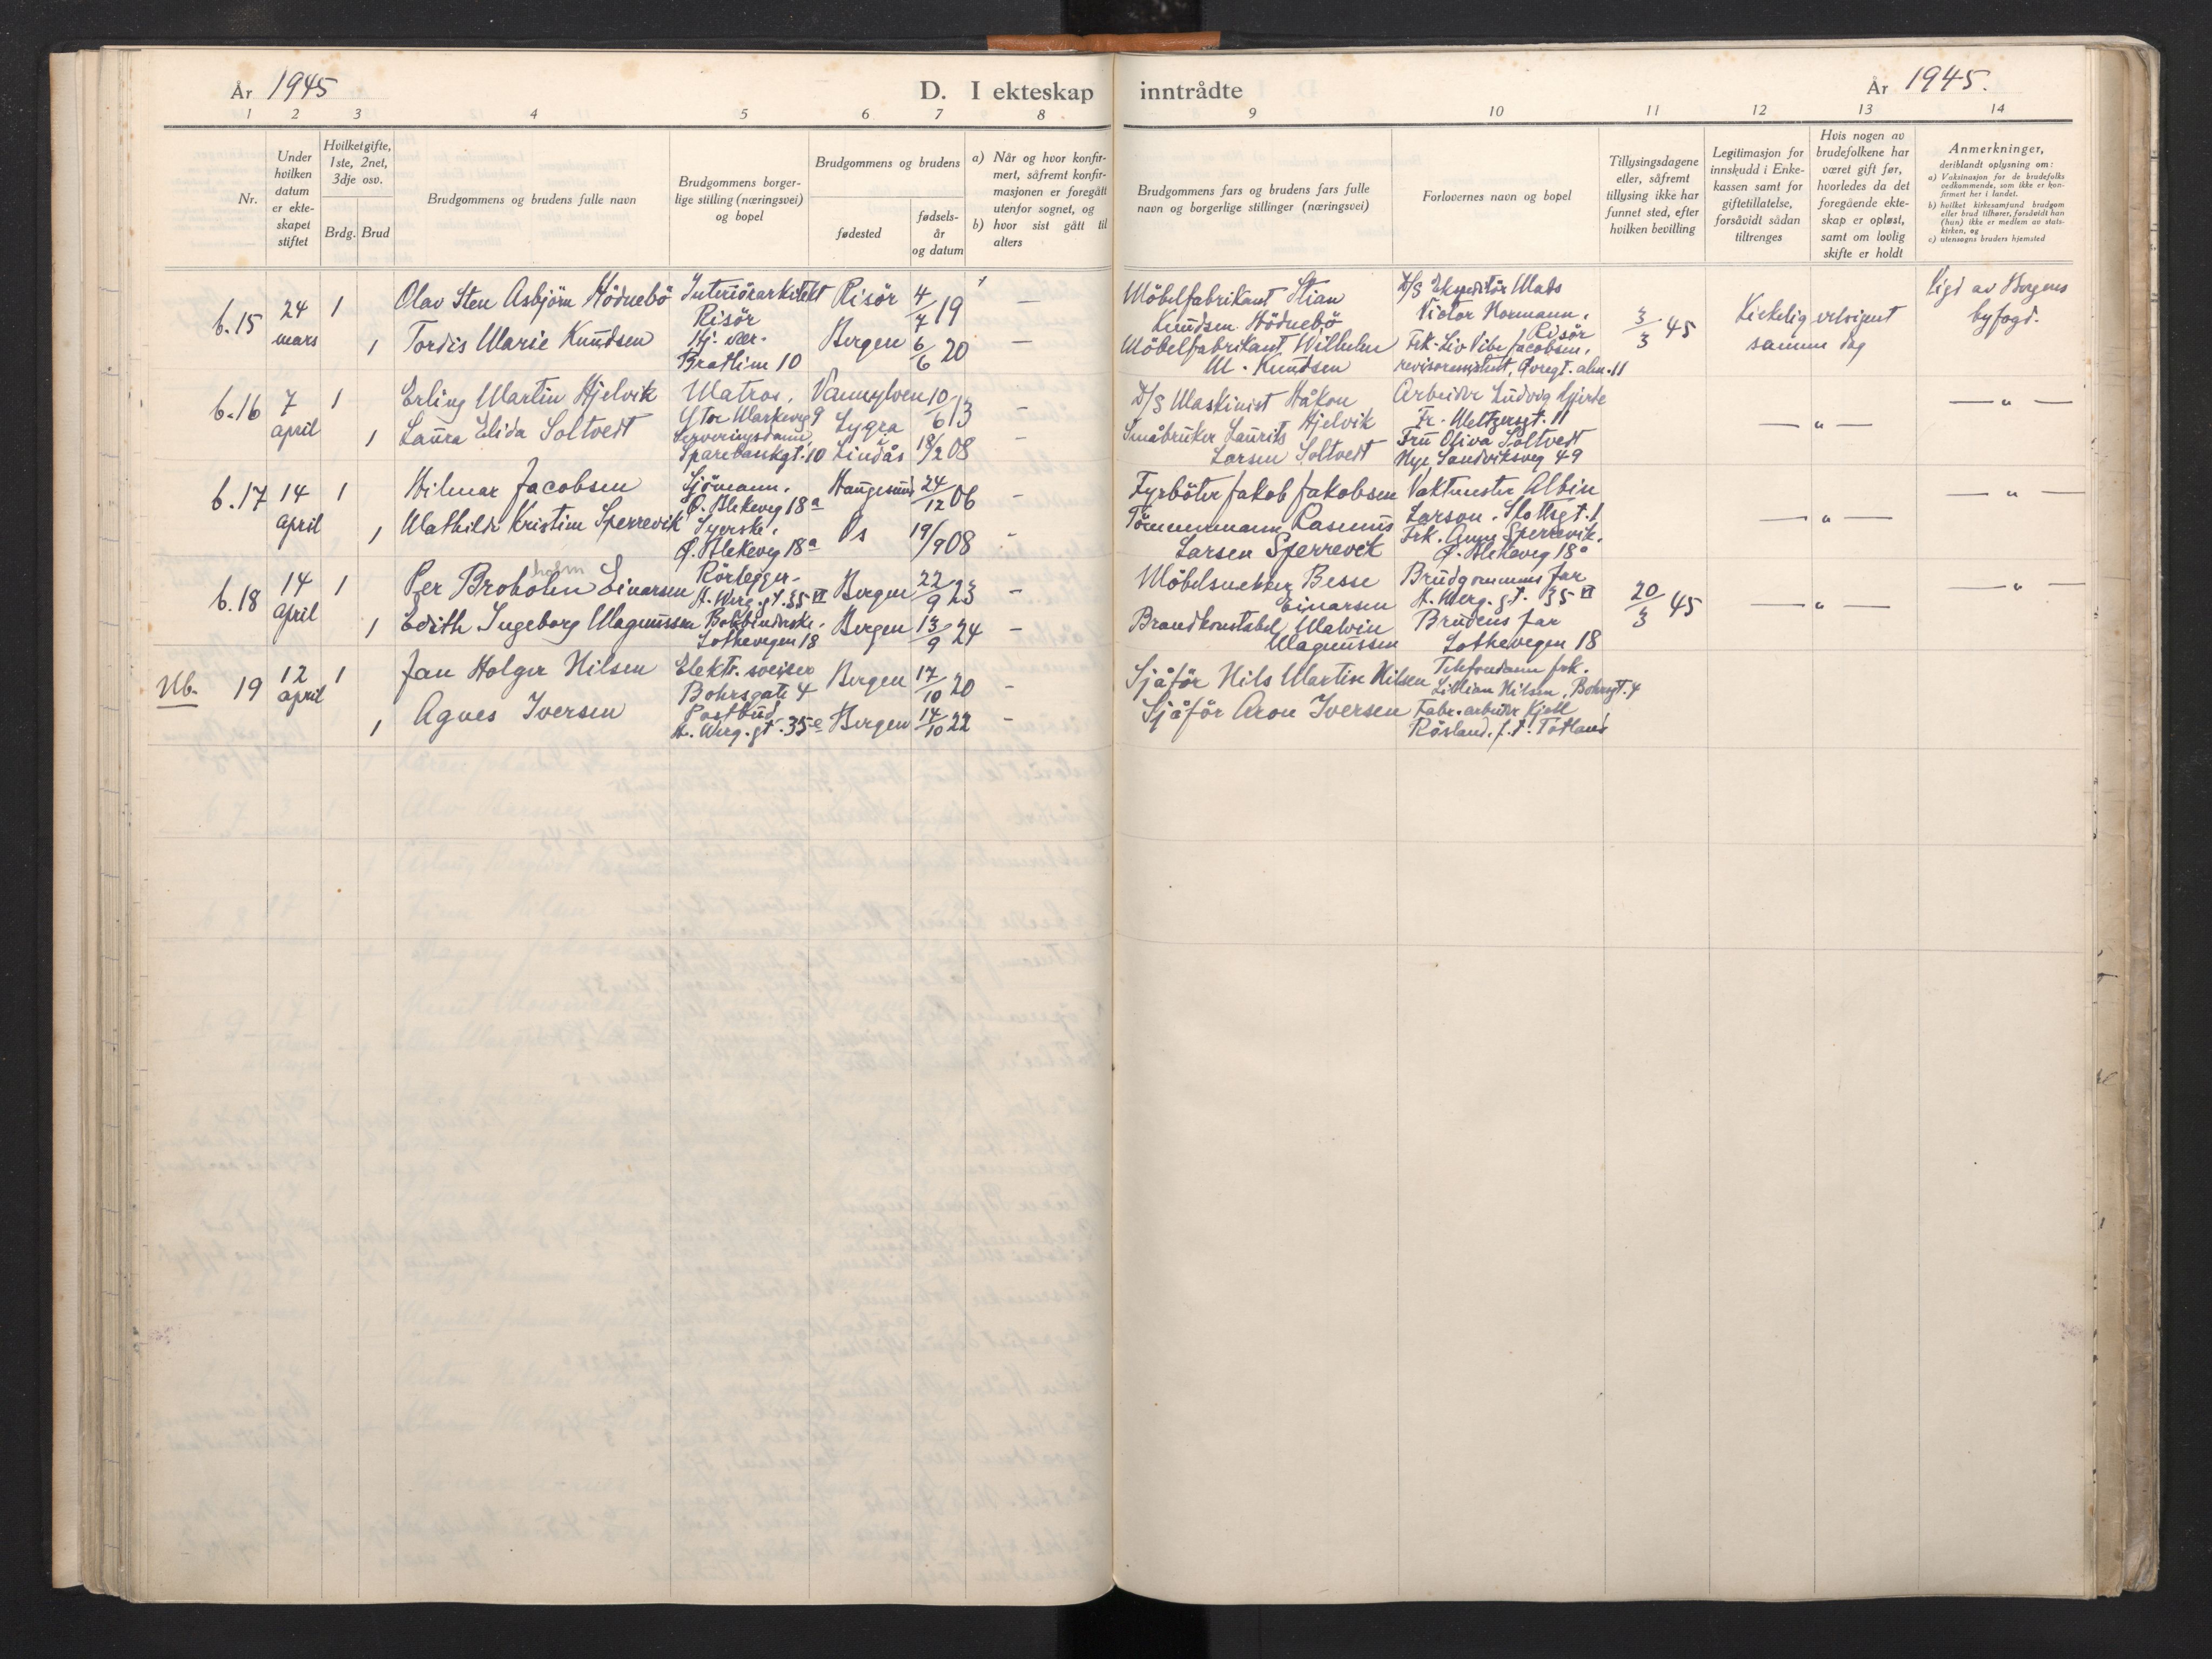 År 1945
D. I ekteskap inntrådte
År 1945.
1 2 3 4 5 6 7 8 9 10 11 12 13 14
Nr.
Under hvilken datum er ekteskapet stiftet
Hvilket gifte, 1ste, 2net, 3dje osv.
Brdg. Brud
Brudgommens og brudens fulle navn
Brudgommens borgerlige stilling (næringsvei) og bopel
Brudgommens og brudens
fødested
fødselsår og datum
a) Når og hvor konfirmert, såfremt konfirmasjonen er foregått utenfor sognet, og
b) hvor sist gått til alters
Brudgommens fars og brudens fars fulle navn og borgerlige stillinger (næringsvei)
Forlovernes navn og bopel
Tillysingsdagene eller, såfremt tillysing ikke har funnet sted, efter hvilken bevilling
Legitimasjon for innskudd i Enkekassen samt for giftetillatelse, forsåvidt sådan tiltrenges
Hvis nogen av brudefolkene har været gift før, hvorledes da det foregående ekteskap er opløst, samt om lovlig skifte er holdt
Anmerkninger,
deriblandt oplysning om:
a) Vaksinasjon for de brudefolks vedkommende, som ikke er konfirmert her i landet.
b) hvilket kirkesamfund brudgom eller brud tilhører, forsåvidt han (hun) ikke er medlem av statskirken, og
c) utensogns bruders hjemsted
b.15 24 mars 1 Olav Sten Asbjörn Hödnebö Interiörarkitekt Risör Risör 4/7 19 —
Möbelfabrikant Stian Knudsen Hödnebö D/S Ekspeditör Mads Victor Normann, Risör 3/3 45 Kirkelig velsignet samme dag Vigd av Bergens byfogd.
1 Tordis Marie Knudsen Hj. vær. Bratlien 10 Bergen 6/6 20 —
Möbelfabrikant Wilhelm M. Knudsen Frk. Liv Vibe Jacobsen, revisorassistent, Øvregt. alm. 11
b.16 7 april 1 Erling Martin Hjelvik Matros, Vannylven 10/6 13 —
D/S Maskinist Håkon Hjelvik Arbeider Ludvig Gjerde Fr. Meltzersgt. 11 — " — — " —
1 Laura Elida Soltvedt Serveringsdame, Sparebankgt. 10 Lygra Lindås 18/2 08 —
Småbruker Laurits Larsen Soltvedt Fru Oliva Soltvedt Nye Sandviksveg 49
b.17 14 april 1 Hilmar Jacobsen Sjömann. Ø. Blekeveg 18a Haugesund 24/12 06 —
Fyrböter Jakob Jakobsen Vaktmester Albin Larson. Slottsgt. 1 — " — — " —
1 Mathilde Kristine Sperrevik Syerske. Ø. Blekeveg 18a Os 19/9 08 —
Tömmermann Rasmus Larsen Sperrevik Frk. Anna Sperrevik. Ø. Blekeveg 18a
b.18 14 april 1 Per Broholm holm Einarsen Rörlegger. H. Werg. gt. 35 VI Bergen 22/9 23 —
Möbelsnekker Besse Einarsen Brudgommens far H. Werg. gt. 35 VI 20/3 45 — " — — " —
1 Edith Ingeborg Magnussen Bokbinderske. Lothevegen 18 Bergen 13/9 24 —
Brandkonstabel Malvin Magnussen Brudens far Lothevegen 18
Nb. 19 12 april 1 Jan Holger Nilsen Elektr. sveiser Bohrsgate 4 Bergen 17/10 20 —
Sjåför Nils Martin Nilsen Telefondame frk. Lillian Nilsen, Bohrsgt. 4
1 Agnes Iversen Postbud H. Werg. gt. 35 c Bergen 14/10 22 —
Sjåför Aron Iversen Fabr. arbeider Kjell Rösland, f. t. Totland